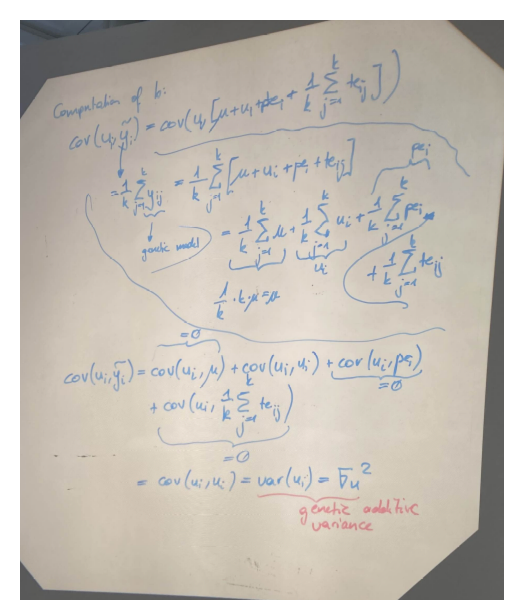 Computation of b:
cov(u_i, ỹ_i) = cov(u_i, [μ + u_i + pe_i + 1/k Σ_{j=1}^{k} te_{ij}])
= 1/k Σ_{j=1}^{k} y_{ij} = 1/k Σ_{j=1}^{k} [μ + u_i + pe_i + te_{ij}]
pe_i
genetic model
= 1/k Σ_{j=1}^{k} μ + 1/k Σ_{j=1}^{k} u_i + 1/k Σ_{j=1}^{k} pe_i
u_i
+ 1/k Σ_{j=1}^{k} te_{ij}
1/k · k · μ = μ
= 0
cov(u_i, ỹ_i) = cov(u_i, μ) + cov(u_i, u_i) + cov(u_i, pe_i)
= 0
+ cov(u_i, 1/k Σ_{j=1}^{k} te_{ij})
= 0
= cov(u_i, u_i) = var(u_i) = σ_u²
genetic additive
variance